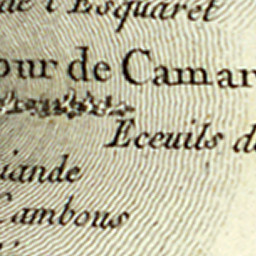 de l'Esquaret
our de Camar
Eceuils d
iande
Cambous